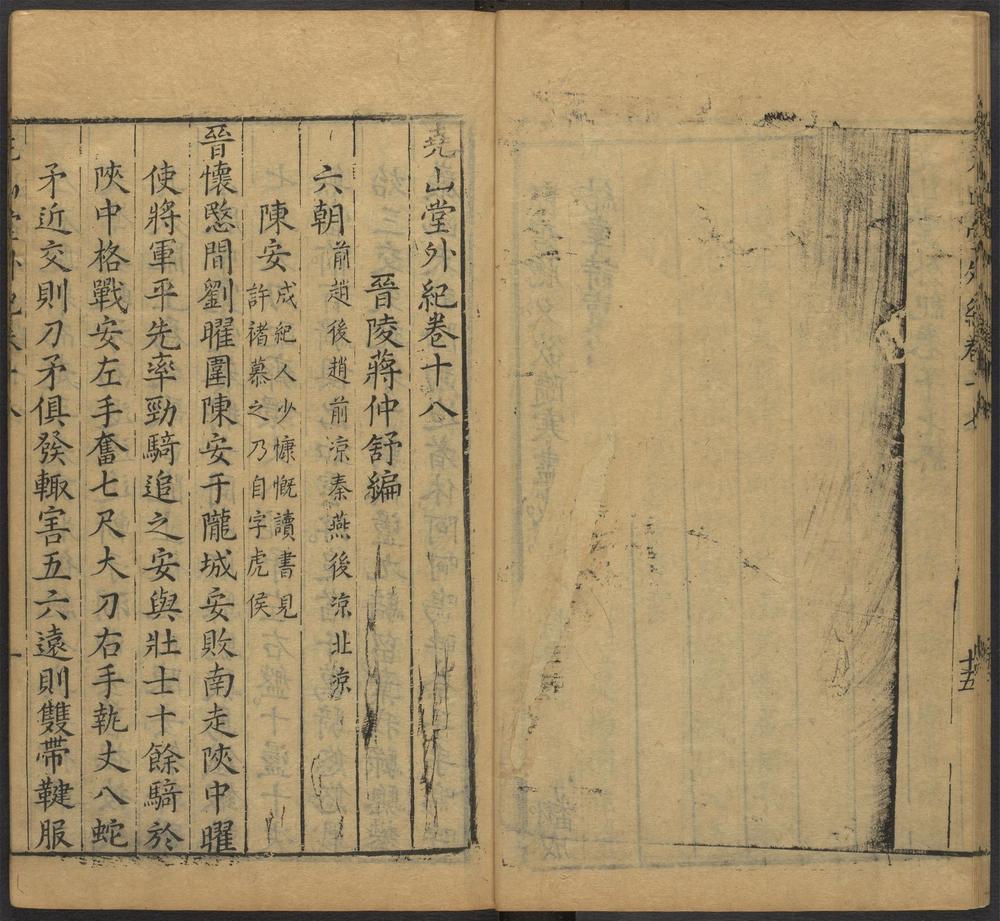 堯山堂外紀卷十八
晉陵蔣仲舒編
六朝 前趙後趙前涼秦燕後涼北涼
陳安 成紀人少慷慨讀書見
許褚慕之乃自字虎侯
晉懷愍間劉曜圍陳安于隴城安敗南走陝中曜
使將軍平先率勁騎追之安與壯士十餘騎於
陝中格戰安左手奮七尺大刀右手執丈八蛇
矛近交則刀矛俱發輙害五六遠則雙帶鞬服
一
十五